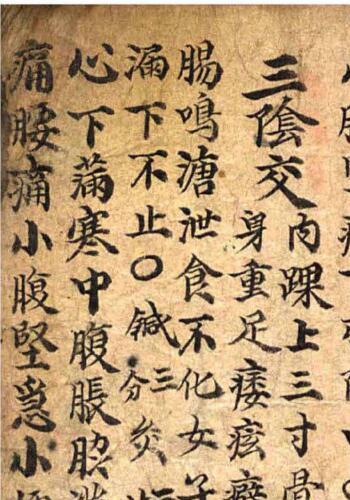 三陰交
内踝上三寸骨
身重足痿痃癖
腸鳴溏泄食不化女子
漏下不止○鍼三分灸
心下滿寒中腹脹
痛腰痛小腹堅急小